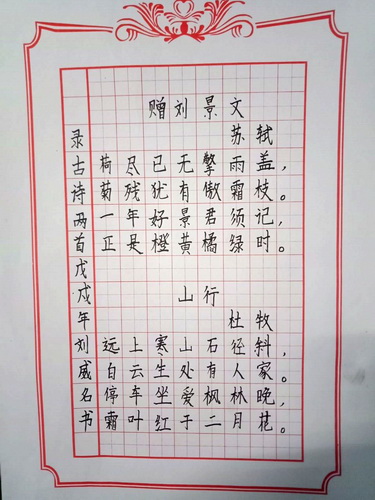 赠刘景文
苏轼
荷尽已无擎雨盖，
菊残犹有傲霜枝。
一年好景君须记，
正是橙黄橘绿时。
山行
杜牧
远上寒山石径斜，
白云生处有人家。
停车坐爱枫林晚，
霜叶红于二月花。
录古诗两首戊戌年刘威名书